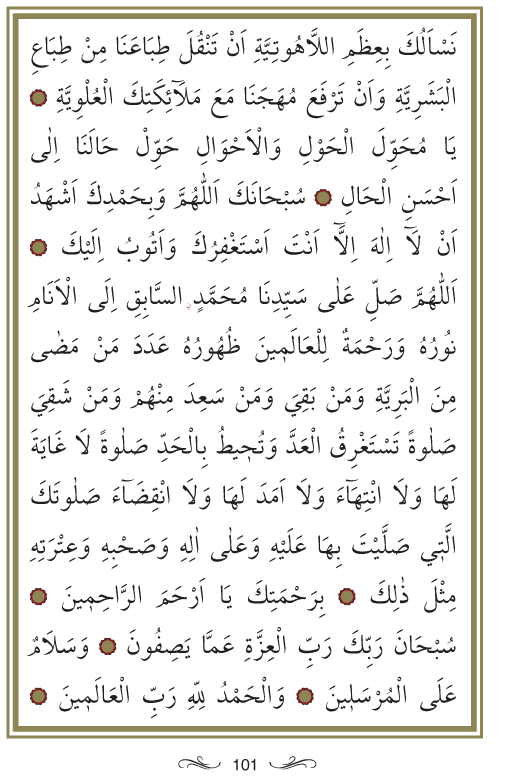 نَسْاَلُكَ بِعِظَمِ اللَّاهُوتِيَّةِ اَنْ تَنْقُلَ طِبَاعَنَا مِنْ طِبَاعِ
الْبَشَرِيَّةِ وَاَنْ تَرْفَعَ مُهَجَنَا مَعَ مَلَآئِكَتِكَ الْعُلْوِيَّةِ
يَا مُحَوِّلَ الْحَوْلِ وَالْاَحْوَالِ حَوِّلْ حَالَنَا اِلٰى
اَحْسَنِ الْحَالِ سُبْحَانَكَ اَللّٰهُمَّ وَبِحَمْدِكَ اَشْهَدُ
اَنْ لَآ اِلٰهَ اِلَّآ اَنْتَ اَسْتَغْفِرُكَ وَاَتُوبُ اِلَيْكَ
اَللّٰهُمَّ صَلِّ عَلٰى سَيِّدِنَا مُحَمَّدٍ السَّابِقِ اِلَى الْاَنَامِ
نُورُهُ وَرَحْمَةٌ لِلْعَالَمِينَ ظُهُورُهُ عَدَدَ مَنْ مَضٰى
مِنَ الْبَرِيَّةِ وَمَنْ بَقِيَ وَمَنْ سَعِدَ مِنْهُمْ وَمَنْ شَقِيَ
صَلٰوةً تَسْتَغْرِقُ الْعَدَّ وَتُحِيطُ بِالْحَدِّ صَلٰوةً لَا غَايَةَ
لَهَا وَلَا انْتِهَآءَ وَلَا اَمَدَ لَهَا وَلَا انْقِضَآءَ صَلٰوتَكَ
الَّتِي صَلَّيْتَ بِهَا عَلَيْهِ وَعَلٰى اٰلِهِ وَصَحْبِهِ وَعِتْرَتِهِ
مِثْلَ ذٰلِكَ بِرَحْمَتِكَ يَا اَرْحَمَ الرَّاحِمِينَ
سُبْحَانَ رَبِّكَ رَبِّ الْعِزَّةِ عَمَّا يَصِفُونَ وَسَلَامٌ
عَلَى الْمُرْسَلِينَ وَالْحَمْدُ لِلّٰهِ رَبِّ الْعَالَمِينَ
101